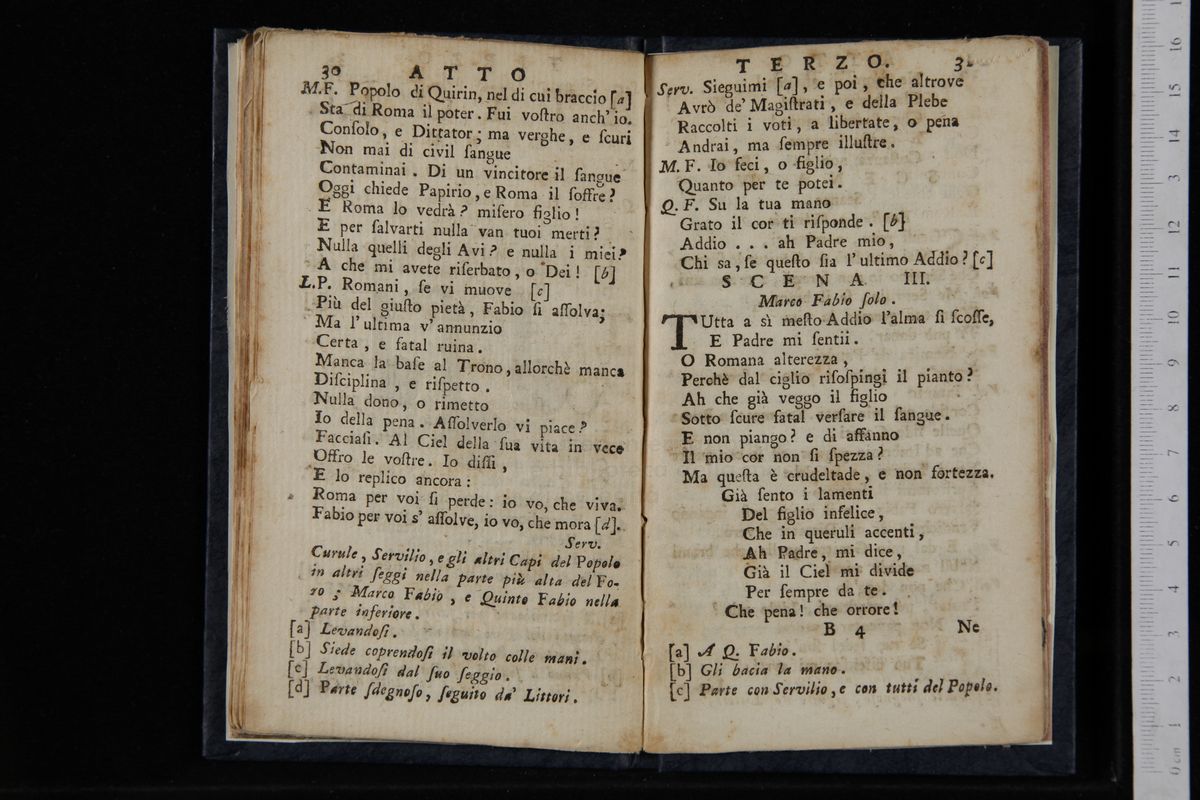 30 ATTO
M.F. Popolo di Quirin, nel di cui braccio [a]
Sta di Roma il poter. Fui voſtro anch' io.
Conſolo, e Dittator; ma verghe, e ſcuri
Non mai di civil ſangue
Contaminai. Di un vincitore il ſangue
Oggi chiede Papirio, e Roma il ſoffre?
E Roma lo vedrà? miſero figlio!
E per ſalvarti nulla van tuoi merti?
Nulla quelli degli Avi? e nulla i miei?
A che mi avete riſerbato, o Dei! [b]
L.P. Romani, ſe vi muove [c]
Più del giuſto pietà, Fabio ſi aſſolva;
Ma l'ultima v'annunzio
Certa, e fatal ruina.
Manca la baſe al Trono, allorchè manca
Diſciplina, e riſpetto.
Nulla dono, o rimetto
Io della pena. Aſſolverlo vi piace?
Facciaſi. Al Ciel della ſua vita in vece
Offro le voſtre. Io diſſi,
E lo replico ancora:
Roma per voi ſi perde: io vo, che viva.
Fabio per voi s'aſſolve, io vo, che mora [d].
Serv.
Curule, Servilio, e gli altri Capi del Popolo
in altri ſeggi nella parte più alta del Fo-
ro; Marco Fabio, e Quinto Fabio nella
parte inferiore.
[a] Levandoſi.
[b] Siede coprendoſi il volto colle mani.
[c] Levandoſi dal ſuo ſeggio.
[d] Parte ſdegnoſo, ſeguito da' Littori.
TERZO. 3
Serv. Sieguimi [a], e poi, che altrove
Avrò de' Magiſtrati, e della Plebe
Raccolti i voti, a libertate, o pena
Andrai, ma ſempre illuſtre.
M. F. Io feci, o figlio,
Quanto per te potei.
Q. F. Su la tua mano
Grato il cor ti riſponde. [b]
Addio . . . ah Padre mio,
Chi sa, ſe queſto ſia l'ultimo Addio? [c]
SCENA III.
Marco Fabio ſolo.
TUtta a sì meſto Addio l'alma ſi ſcoſſe,
E Padre mi ſentii.
O Romana alterezza,
Perchè dal ciglio riſoſpingi il pianto?
Ah che già veggo il figlio
Sotto ſcure fatal verſare il ſangue.
E non piango? e di affanno
Il mio cor non ſi ſpezza?
Ma queſta è crudeltade, e non fortezza.
Già ſento i lamenti
Del figlio infelice,
Che in queruli accenti,
Ah Padre, mi dice,
Già il Ciel mi divide
Per ſempre da te.
Che pena! che orrore!
B 4 Ne
[a] A Q. Fabio.
[b] Gli bacia la mano.
[c] Parte con Servilio, e con tutti del Popolo.
0 cm
1
2
3
4
5
6
7
8
9
10
11
12
13
14
15
16